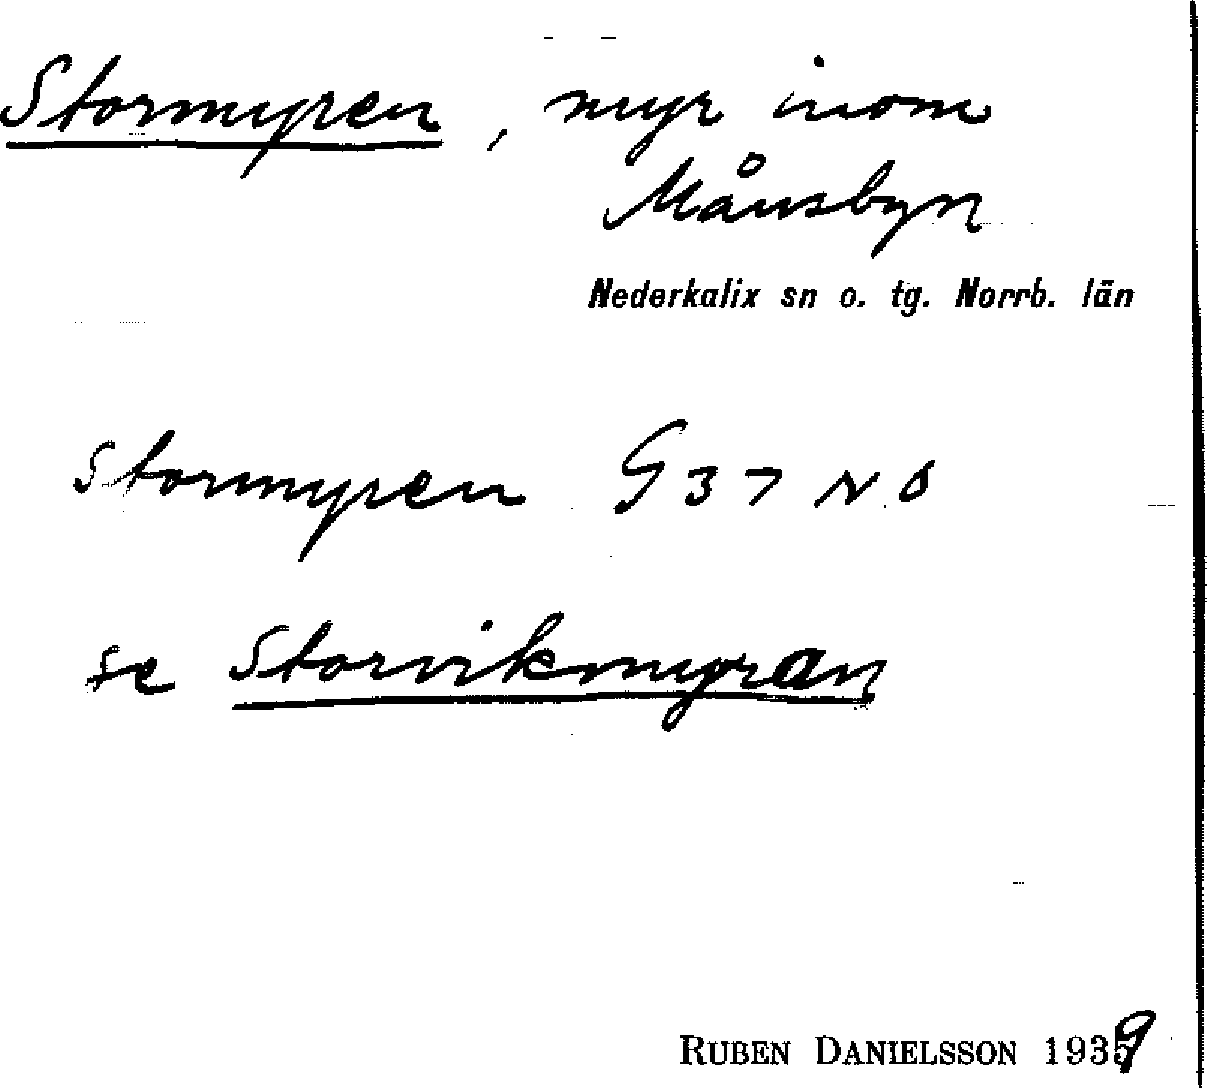 Stormyren, myr inom
Månsbyn
Nederkalix sn o. tg. Norrb. län
Stormyren G 37 NO
se Storvikmyran
RUBEN DANIELSSON 1939